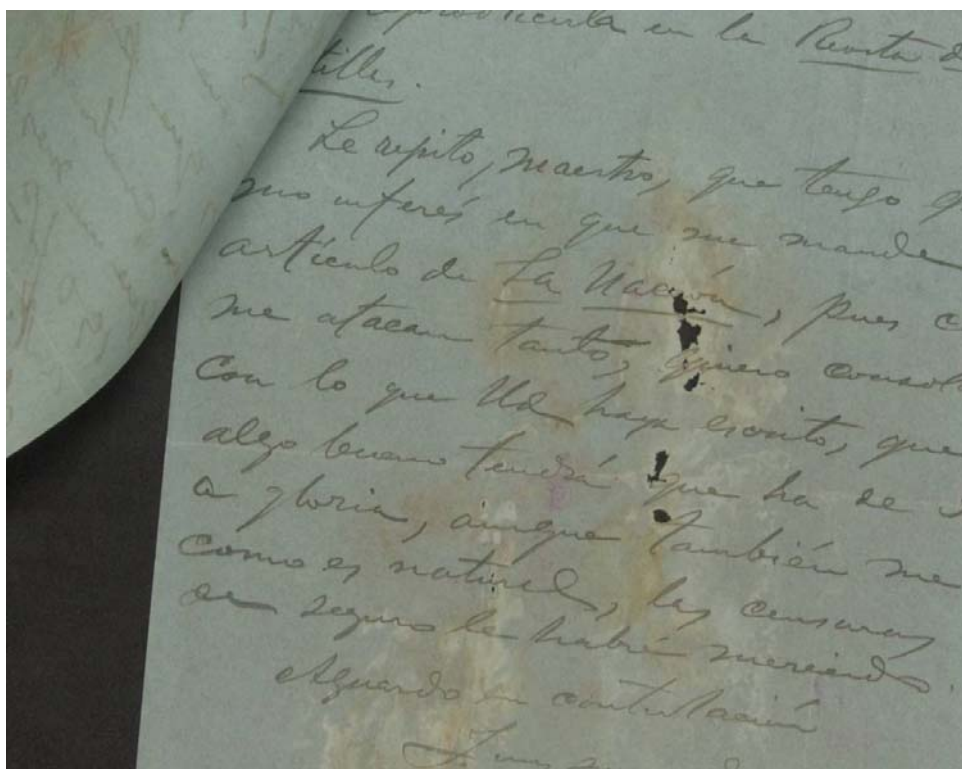 en la Revista de
tilles.
Le repito, maestro, que tengo
mo interés en que me mande
artículo de La Nación, pues
me atacan tanto, quiero consol
con lo que Ud haya escrito, que
algo bueno tendrá que ha de
a gloria, aunque también me
como es natural, las censuras
de seguro le habré merecido.
Aguardo su contestación